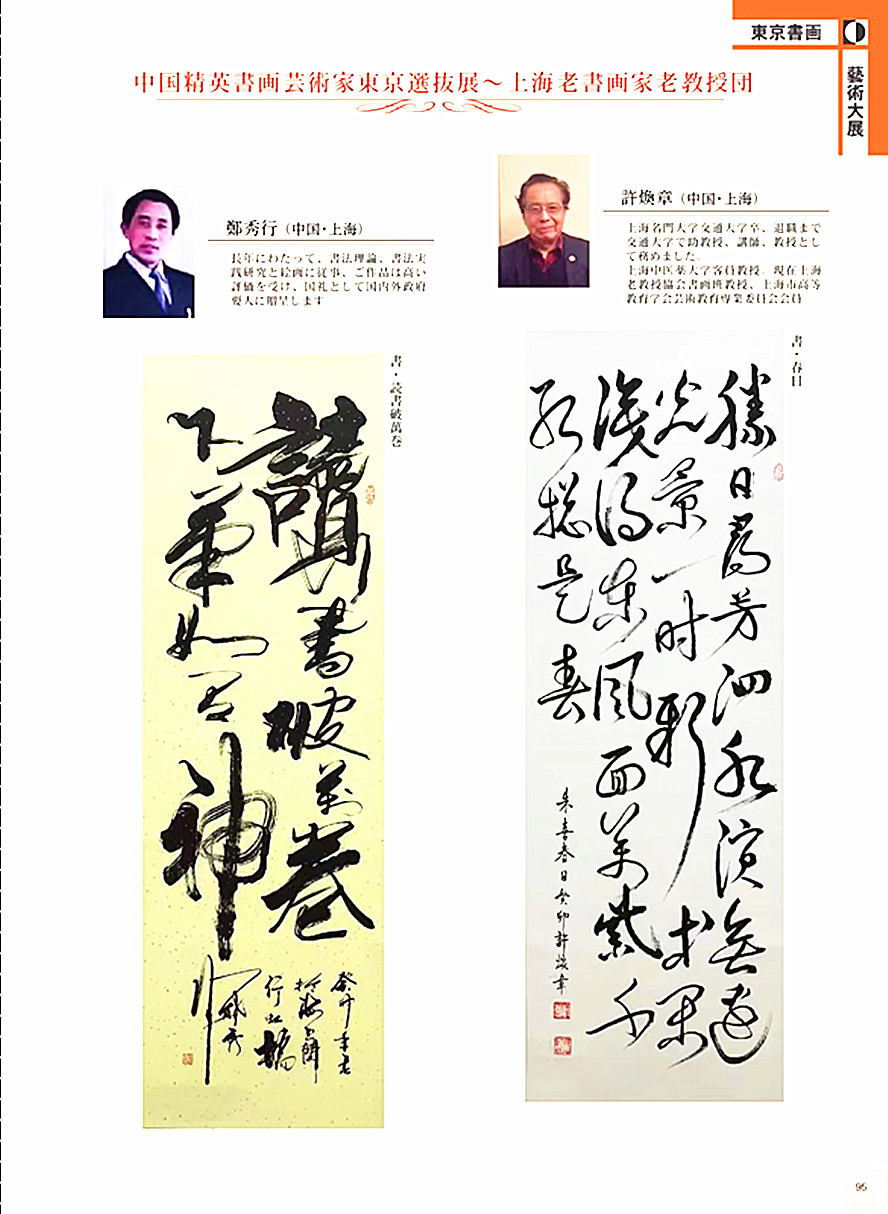 東京書画
藝術大展
中国精英書画芸術家東京選抜展～上海老書画家老教授団
鄭秀行（中国・上海）
長年にわたって、書法理論、書法実
践研究と絵画に従事、ご作品は高い
評価を受け、国礼として国内外政府
要人に贈呈します
許煥章（中国・上海）
上海名門大学交通大学卒、退職まで
交通大学で助教授、講師、教授とし
て務めました。
上海中医薬大学客員教授。現在上海
老教授協会書画班教授、上海市高等
教育学会芸術教育専業委員会会員
書・読書破萬巻
讀書破萬卷
下筆如有神
癸卯年
書・春日
勝日尋芳泗水濱無邊
光景一时新 等閑
識得東風面萬紫千
紅總是春
朱熹春日癸卯許煥章
95